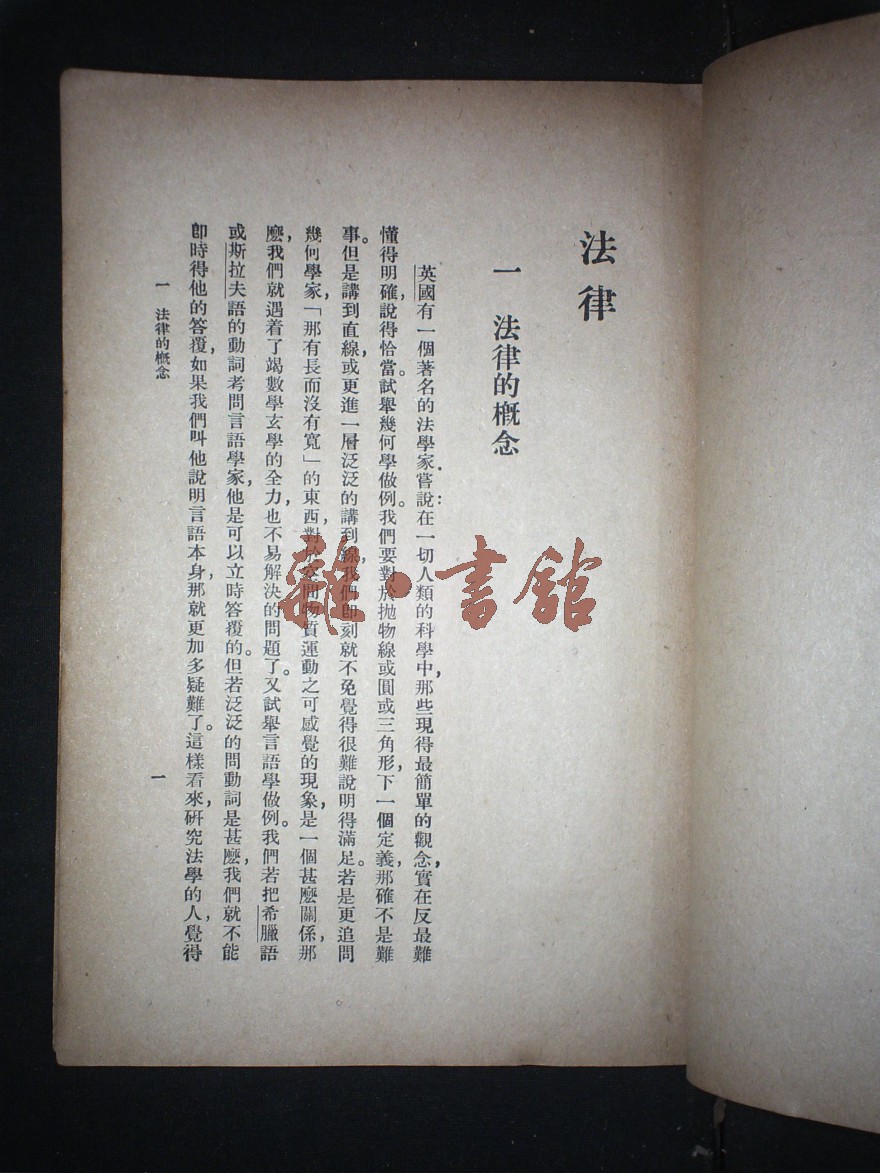 法律
一　法律的概念
英國有一個著名的法學家嘗說：在一切人類的科學中，那些現得最簡單的觀念，實在反最難
懂得明確，說得恰當。試舉幾何學做例。我們要對於拋物線或圓或三角形，下一個定義，那確不是難
事。但是講到直線，或更進一層泛泛的講到線，我們即刻就不免覺得很難說明得滿足。若是更追問
幾何學家，「那有長而沒有寬」的東西，對於空間物質運動之可感覺的現象，是一個甚麽關係，那
麽，我們就遇着了竭數學玄學的全力，也不易解決的問題了。又試舉言語學做例。我們若把希臘語
或斯拉夫語的動詞考問言語學家，他是可以立時答覆的。但若泛泛的問動詞是甚麽，我們就不能
卽時得他的答覆，如果我們叫他說明言語本身，那就更加多疑難了。這樣看來，研究法學的人，覺得
一　法律的概念
一
雜·書館